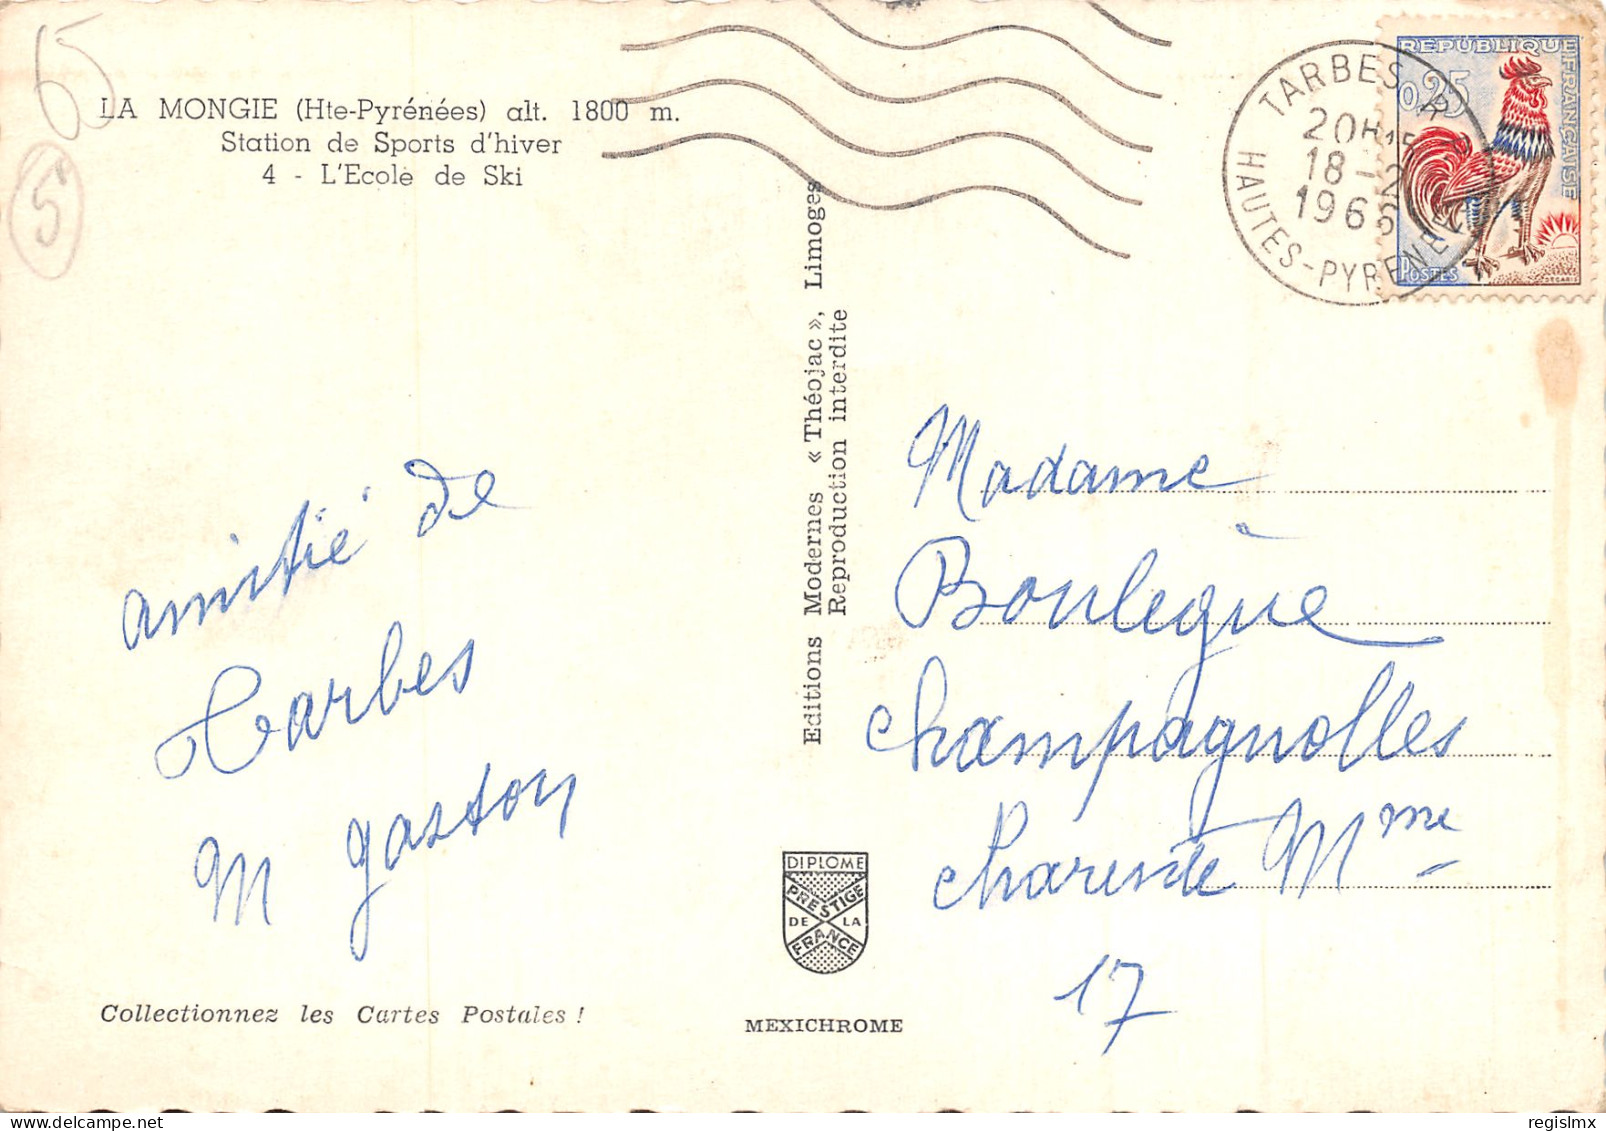 65
LA MONGIE (Hte-Pyrénées) alt. 1800 m.
Station de Sports d'hiver
4 - L'Ecole de Ski
5
amitié de
Tarbes
M gaston
Collectionnez les Cartes Postales !
Editions Modernes « Théojac », Limoges
Reproduction interdite
DIPLOME
PRESTIGE
DE LA
FRANCE
MEXICHROME
TARBES A
20H15
18-2
1966
HAUTES-PYRENEES
REPUBLIQUE FRANÇAISE
0,25
POSTES
DECARIS
Madame
Boulègue
Champagnolles
Charente Mme
17
regislmx